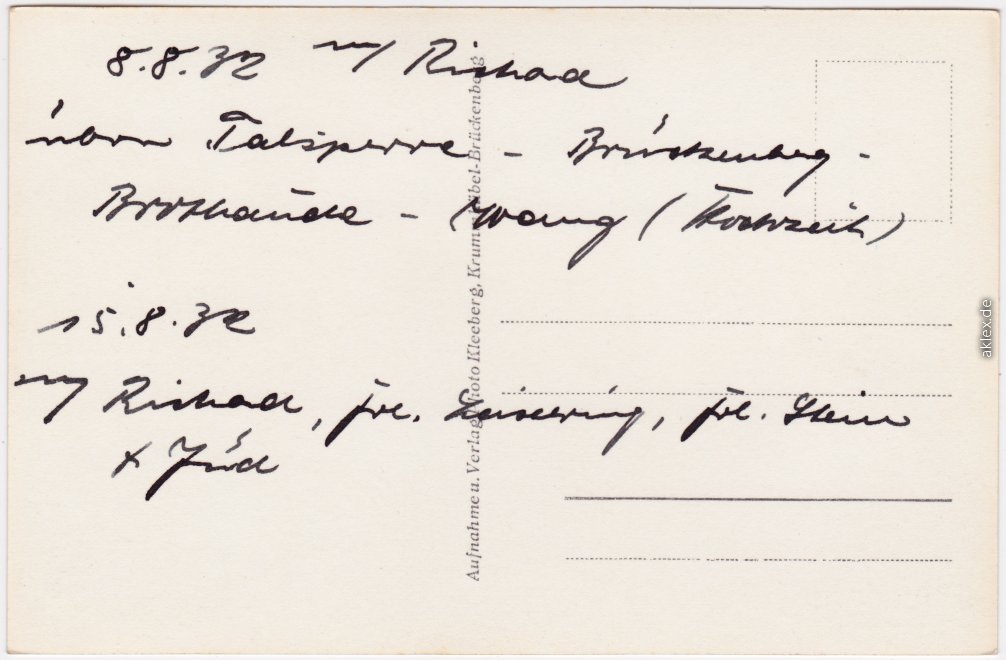 8.8.32 m/ Richard
übern Talsperre - Brückenberg -
Brotbaude - Wang (Hochzeit)
15.8.32
m/ Richard, Frl. Leistering, Frl. Stein
+
Aufnahme u. Verlag Photo Kleeberg, Krummhübel-Brückenberg
aklex.de